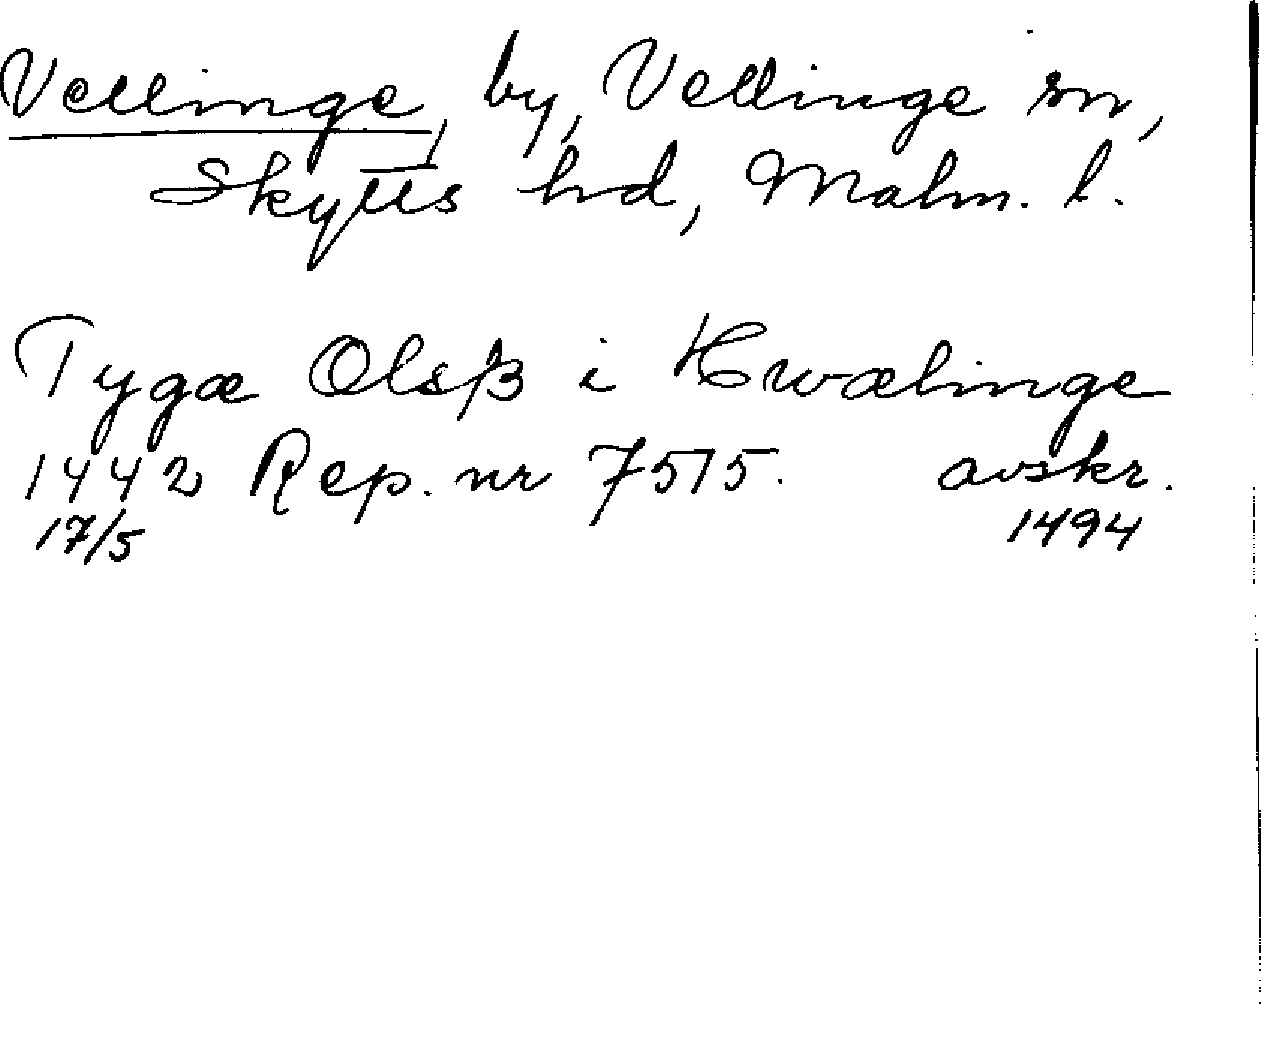 Vellinge, by, Vellinge sn,
Skytts hd, Malm. l.
Tygæ Olsß i Hwælinge
1442 Rep. nr 7515. avskr.
17/5 1494